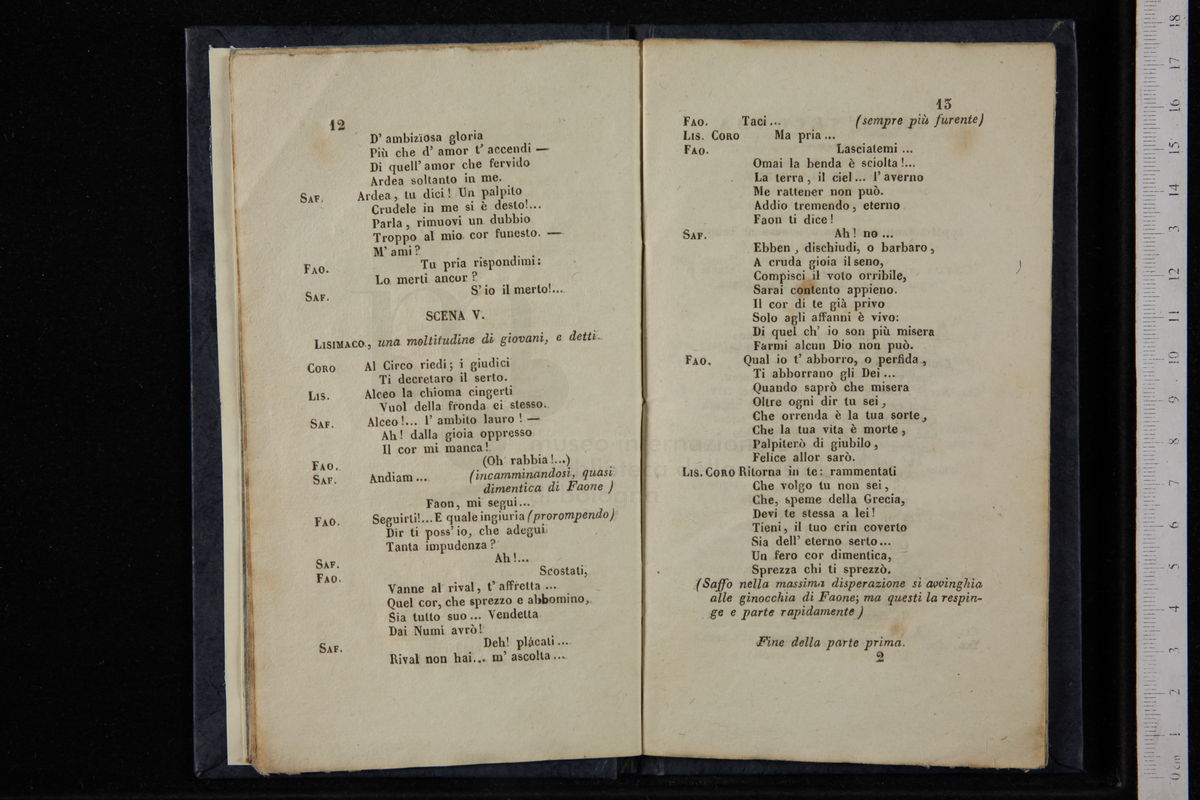 12
D' ambiziosa gloria
Più che d' amor t' accendi —
Di quell' amor che fervido
Ardea soltanto in me.
SAF. Ardea, tu dici! Un palpito
Crudele in me si è desto!...
Parla, rimuovi un dubbio
Troppo al mio cor funesto. —
M' ami?
FAO. Tu pria rispondimi:
Lo merti ancor?
SAF. S' io il merto!...
SCENA V.
LISIMACO, una moltitudine di giovani, e detti.
CORO Al Circo riedi; i giudici
Ti decretaro il serto.
LIS. Alceo la chioma cingerti
Vuol della fronda ei stesso.
SAF. Alceo!... l' ambito lauro! —
Ah! dalla gioia oppresso
Il cor mi manca!
FAO. (Oh rabbia!...)
SAF. Andiam... (incamminandosi, quasi
dimentica di Faone)
Faon, mi segui...
FAO. Seguirti!... E quale ingiuria (prorompendo)
Dir ti poss' io, che adegui
Tanta impudenza?
SAF. Ah!...
FAO. Scostati,
Vanne al rival, t' affretta...
Quel cor, che sprezzo e abbomino,
Sia tutto suo... Vendetta
Dai Numi avrò!
SAF. Deh! plácati...
Rival non hai... m' ascolta...
13
FAO. Taci... (sempre più furente)
LIS. CORO Ma pria...
FAO. Lasciatemi...
Omai la benda è sciolta!...
La terra, il ciel... l' averno
Me rattener non può.
Addio tremendo, eterno
Faon ti dice!
SAF. Ah! no...
Ebben, dischiudi, o barbaro,
A cruda gioia il seno,
Compisci il voto orribile,
Sarai contento appieno.
Il cor di te già privo
Solo agli affanni è vivo:
Di quel ch' io son più misera
Farmi alcun Dio non può.
FAO. Qual io t' abborro, o perfida,
Ti abborrano gli Dei...
Quando saprò che misera
Oltre ogni dir tu sei,
Che orrenda è la tua sorte,
Che la tua vita è morte,
Palpiterò di giubilo,
Felice allor sarò.
LIS. CORO Ritorna in te: rammentati
Che volgo tu non sei,
Che, speme della Grecia,
Devi te stessa a lei!
Tieni, il tuo crin coverto
Sia dell' eterno serto...
Un fero cor dimentica,
Sprezza chi ti sprezzò.
(Saffo nella massima disperazione si avvinghia
alle ginocchia di Faone; ma questi la respin-
ge e parte rapidamente)
Fine della parte prima.
2